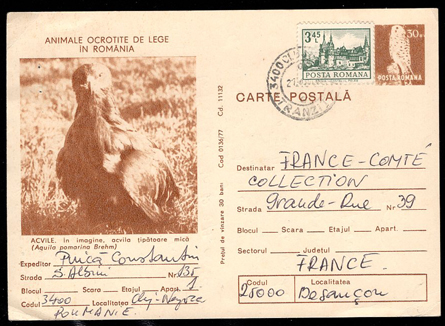 ANIMALE OCROTITE DE LEGE
ÎN ROMÂNIA
ACVILE. În imagine, acvila țipătoare mică
(Aquila pomarina Brehm)
Expeditor Puică Constantin
Strada S. Albini Nr. 135
Blocul Scara Etajul Apart. 1
Codul 3400 Localitatea Cluj-Napoca
ROUMANIE
Prețul de vînzare 30 bani
Cod 0136/77
Cd. 11132
3400 CLUJ
TRANZIT
3 45 L
POSTA ROMANA
30 B
POSTA ROMÂNĂ
CARTE POȘTALĂ
Destinatar FRANCE-COMTÉ
COLLECTION
Strada Grande-Rue Nr. 39
Blocul Scara Etajul Apart.
Sectorul Județul
FRANCE
Codul Localitatea
25000 Besançon